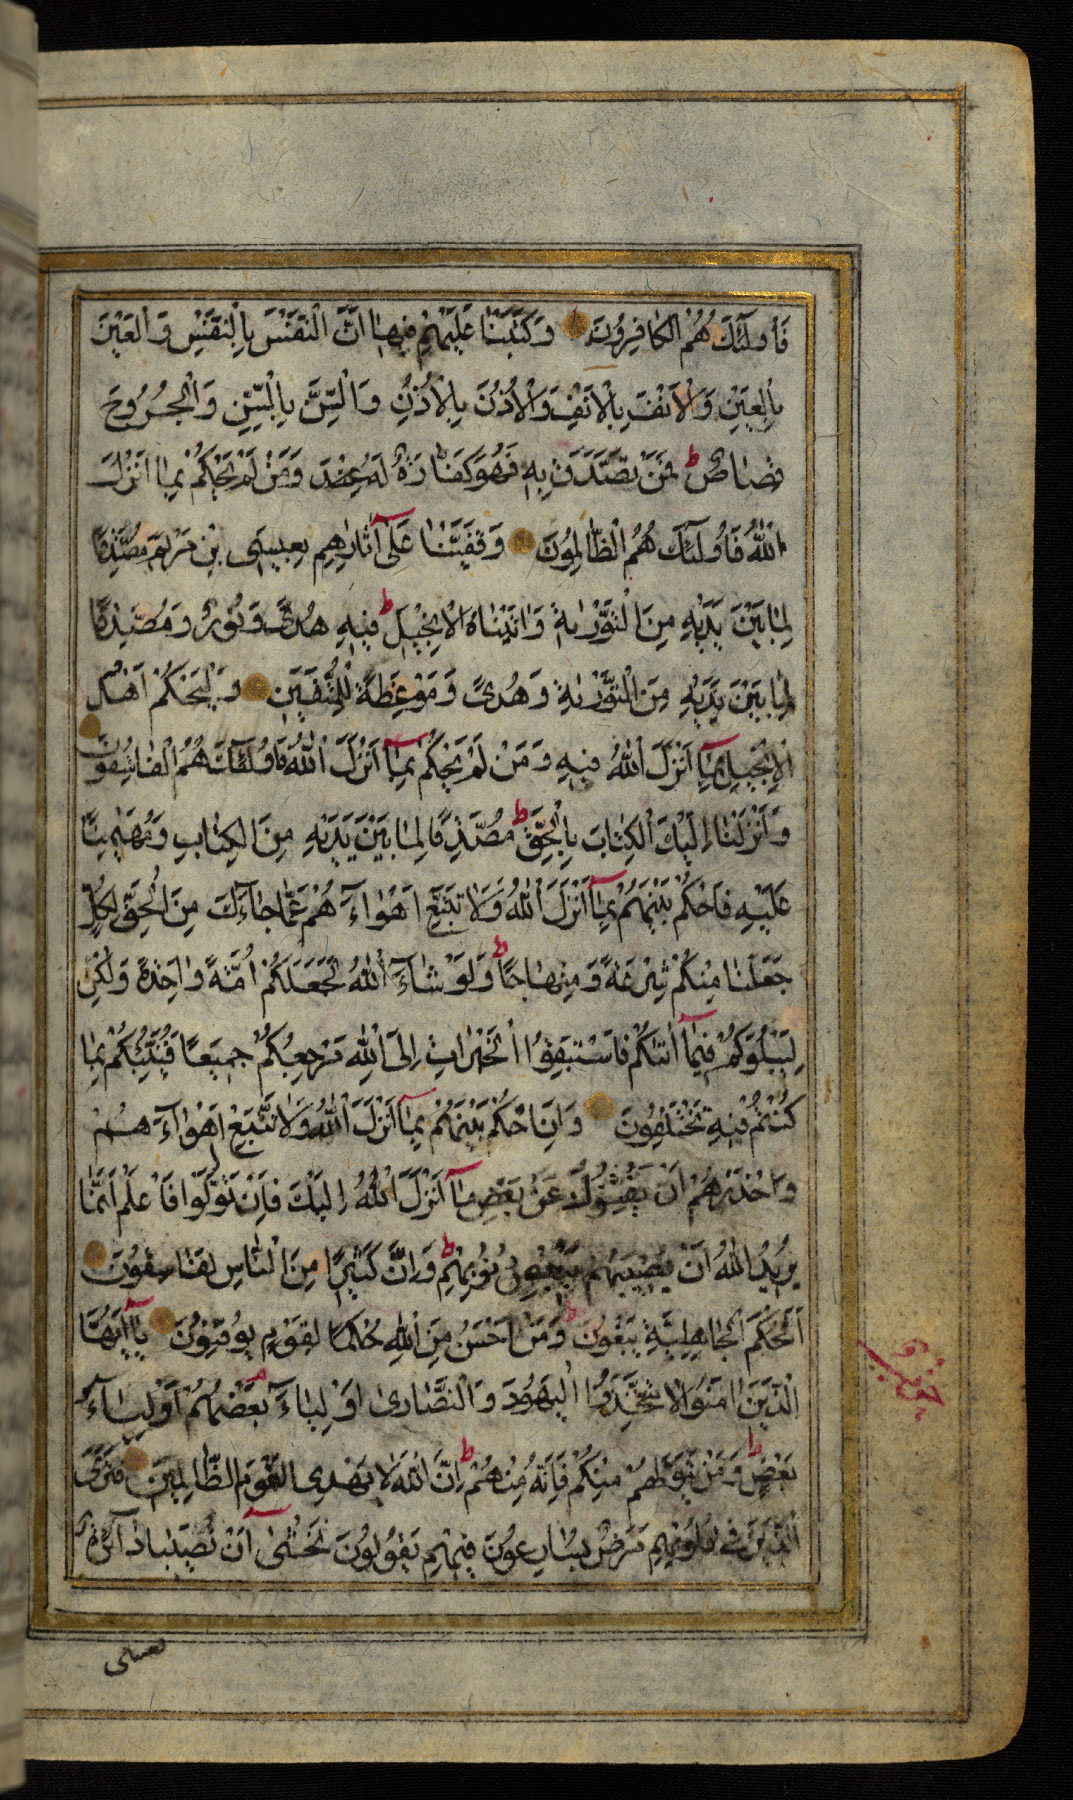 فَأُولَٰئِكَ هُمُ الْكَافِرُونَ وَكَتَبْنَا عَلَيْهِمْ فِيهَا أَنَّ النَّفْسَ بِالنَّفْسِ وَالْعَيْنَ
بِالْعَيْنِ وَالْأَنْفَ بِالْأَنْفِ وَالْأُذُنَ بِالْأُذُنِ وَالسِّنَّ بِالسِّنِّ وَالْجُرُوحَ
قِصَاصٌ ط فَمَنْ تَصَدَّقَ بِهِ فَهُوَ كَفَّارَةٌ لَهُ وَمَنْ لَمْ يَحْكُمْ بِمَا أَنْزَلَ
اللَّهُ فَأُولَٰئِكَ هُمُ الظَّالِمُونَ وَقَفَّيْنَا عَلَىٰ آثَارِهِمْ بِعِيسَى بْنِ مَرْيَمَ مُصَدِّقًا
لِمَا بَيْنَ يَدَيْهِ مِنَ التَّوْرٰيةِ وَآتَيْنَاهُ الْإِنْجِيلَ ط فِيهِ هُدًى وَنُورٌ وَمُصَدِّقًا
لِمَا بَيْنَ يَدَيْهِ مِنَ التَّوْرٰيةِ وَهُدًى وَمَوْعِظَةً لِلْمُتَّقِينَ وَلْيَحْكُمْ أَهْلُ
الْإِنْجِيلِ بِمَا أَنْزَلَ اللَّهُ فِيهِ وَمَنْ لَمْ يَحْكُمْ بِمَا أَنْزَلَ اللَّهُ فَأُولَٰئِكَ هُمُ الْفَاسِقُونَ
وَأَنْزَلْنَا إِلَيْكَ الْكِتَابَ بِالْحَقِّ ط مُصَدِّقًا لِمَا بَيْنَ يَدَيْهِ مِنَ الْكِتَابِ وَمُهَيْمِنًا
عَلَيْهِ فَاحْكُمْ بَيْنَهُمْ بِمَا أَنْزَلَ اللَّهُ وَلَا تَتَّبِعْ أَهْوَاءَهُمْ عَمَّا جَاءَكَ مِنَ الْحَقِّ لِكُلٍّ
جَعَلْنَا مِنْكُمْ شِرْعَةً وَمِنْهَاجًا ط وَلَوْ شَاءَ اللَّهُ لَجَعَلَكُمْ أُمَّةً وَاحِدَةً وَلَٰكِنْ
لِيَبْلُوَكُمْ فِيمَا آتٰيكُمْ فَاسْتَبِقُوا الْخَيْرَاتِ إِلَى اللَّهِ مَرْجِعُكُمْ جَمِيعًا فَيُنَبِّئُكُمْ بِمَا
كُنْتُمْ فِيهِ تَخْتَلِفُونَ وَأَنِ احْكُمْ بَيْنَهُمْ بِمَا أَنْزَلَ اللَّهُ وَلَا تَتَّبِعْ أَهْوَاءَهُمْ
وَاحْذَرْهُمْ أَنْ يَفْتِنُوكَ عَنْ بَعْضِ مَا أَنْزَلَ اللَّهُ إِلَيْكَ فَإِنْ تَوَلَّوْا فَاعْلَمْ أَنَّمَا
يُرِيدُ اللَّهُ أَنْ يُصِيبَهُمْ بِبَعْضِ ذُنُوبِهِمْ ط وَإِنَّ كَثِيرًا مِنَ النَّاسِ لَفَاسِقُونَ
أَفَحُكْمَ الْجَاهِلِيَّةِ يَبْغُونَ ط وَمَنْ أَحْسَنُ مِنَ اللَّهِ حُكْمًا لِقَوْمٍ يُوقِنُونَ يَا أَيُّهَا
الَّذِينَ آمَنُوا لَا تَتَّخِذُوا الْيَهُودَ وَالنَّصَارَىٰ أَوْلِيَاءَ بَعْضُهُمْ أَوْلِيَاءُ
بَعْضٍ ط وَمَنْ يَتَوَلَّهُمْ مِنْكُمْ فَإِنَّهُ مِنْهُمْ ط إِنَّ اللَّهَ لَا يَهْدِي الْقَوْمَ الظَّالِمِينَ فَتَرَى
الَّذِينَ فِي قُلُوبِهِمْ مَرَضٌ يُسَارِعُونَ فِيهِمْ يَقُولُونَ نَخْشَىٰ أَنْ تُصِيبَنَا دَائِرَةٌ
فعسى